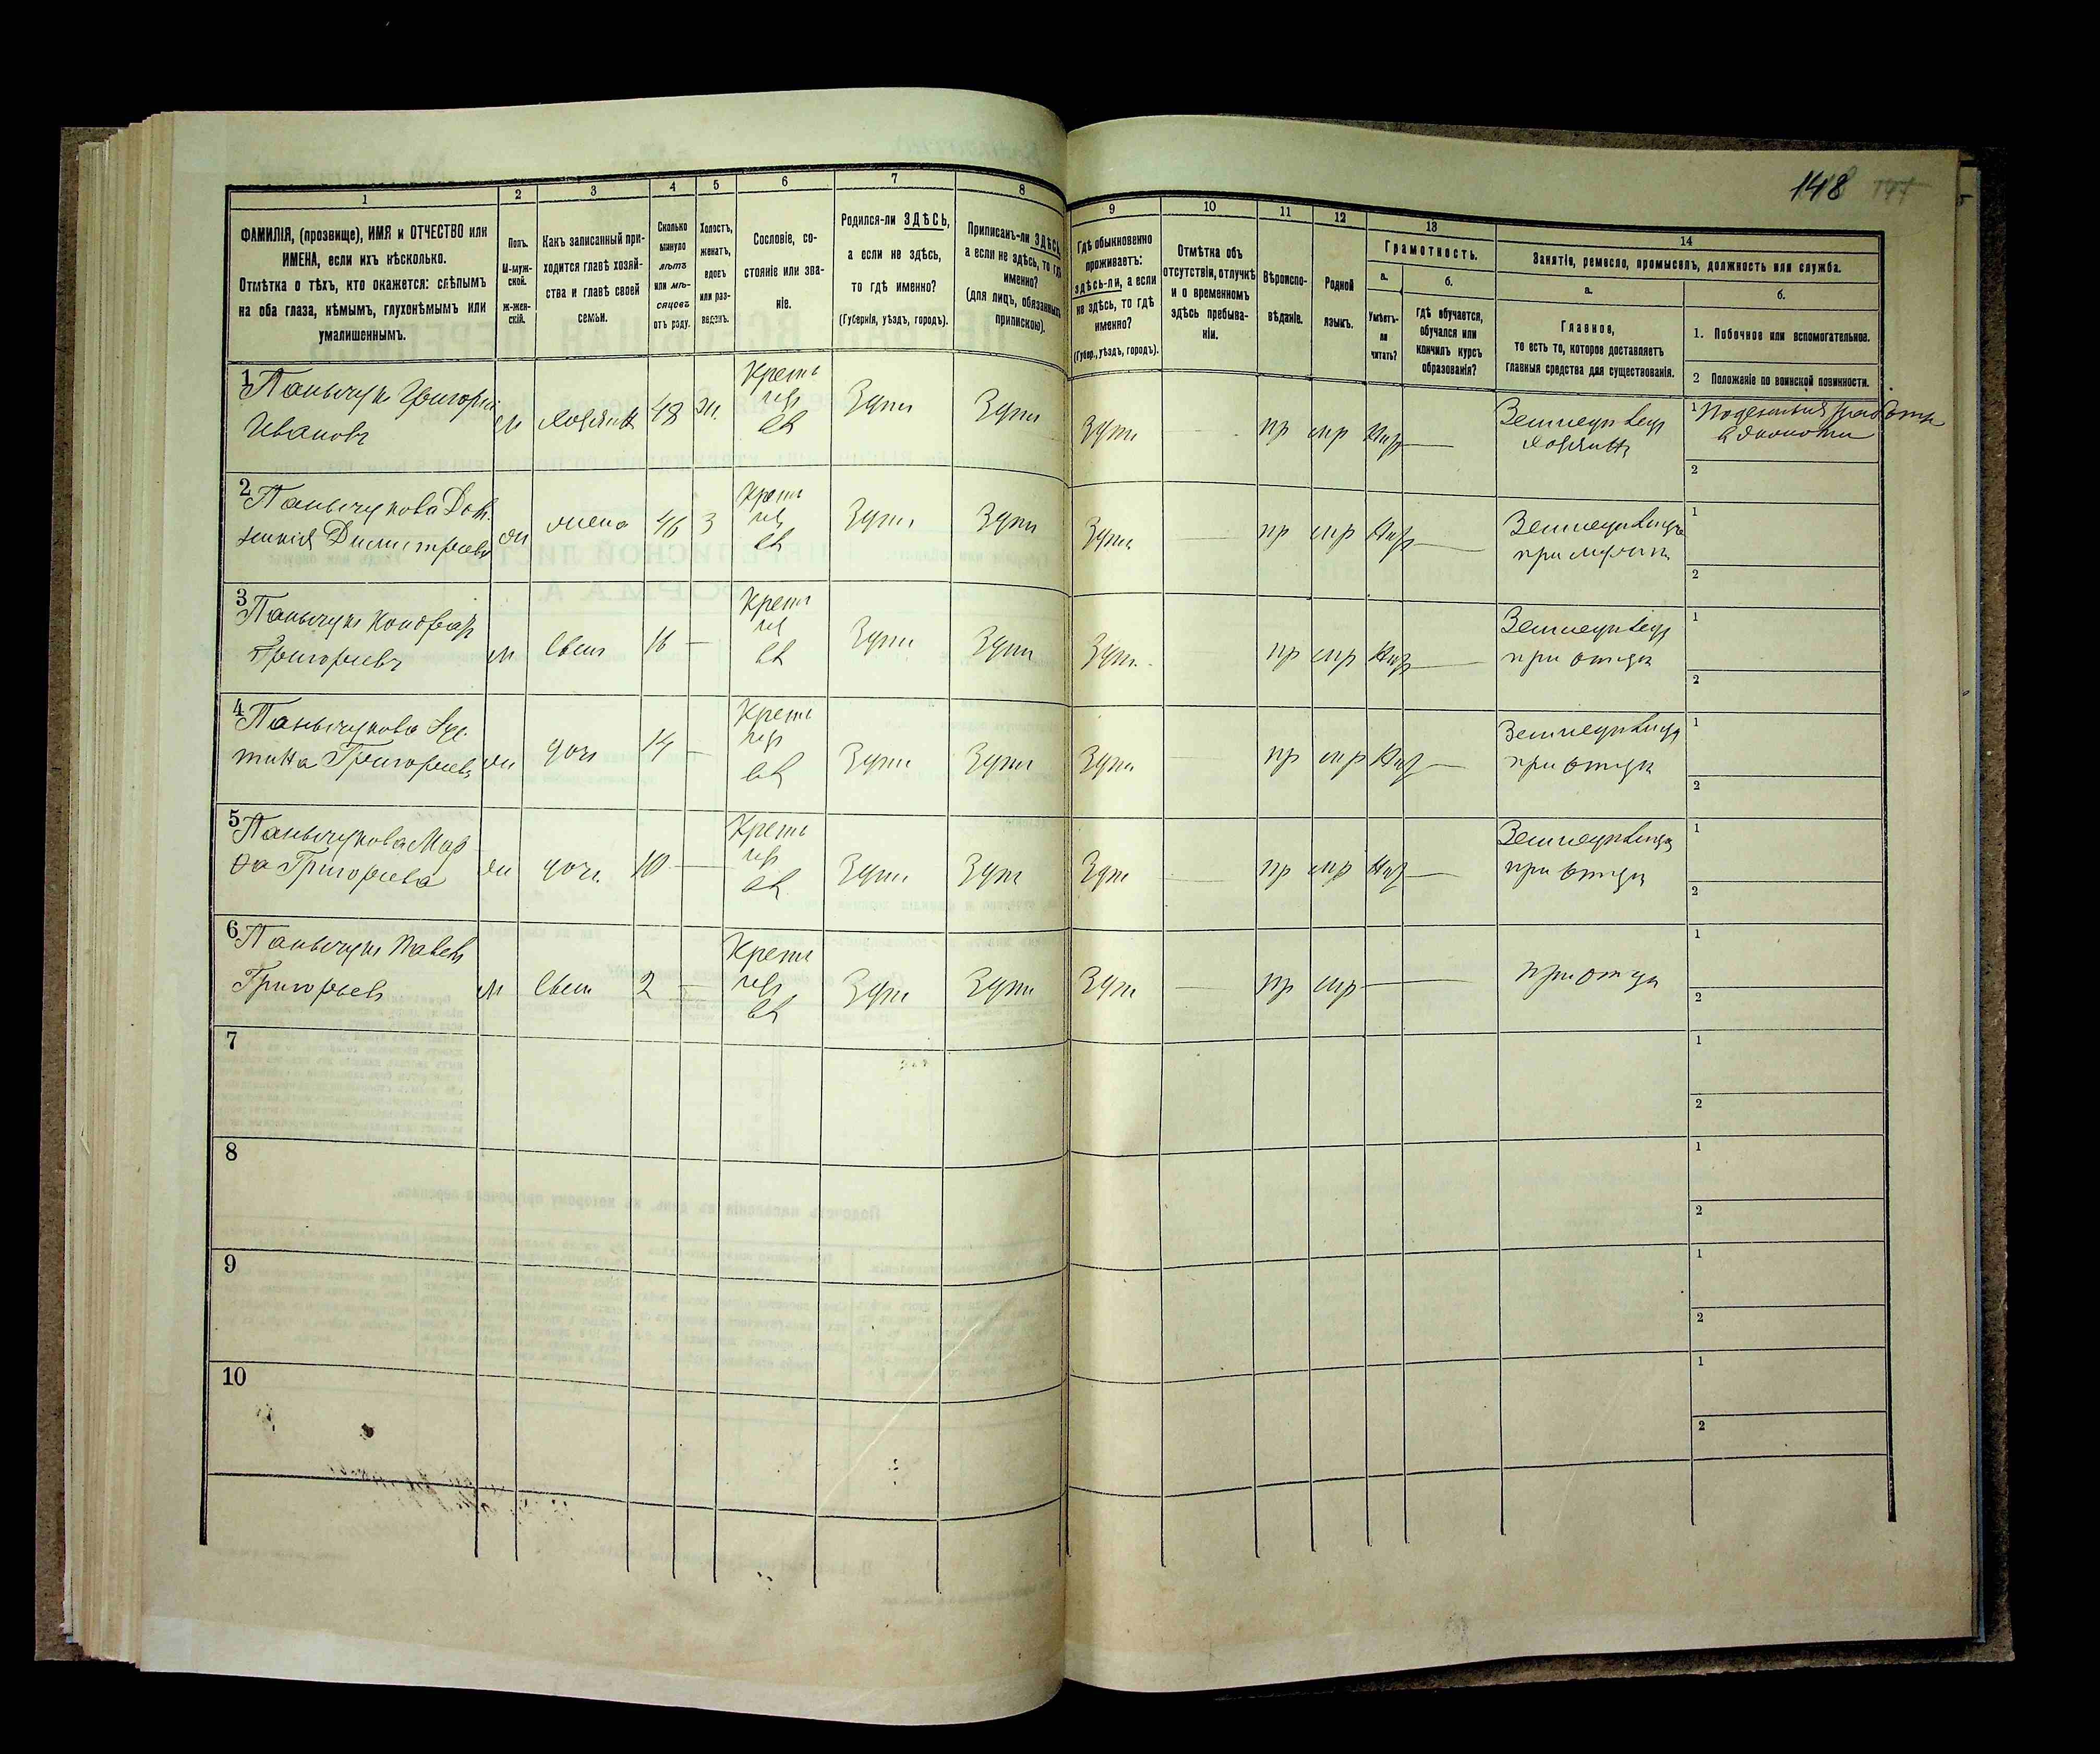 148
1 2 3 4 5 6 7 8 9 10 11 12 13 14
ФАМИЛІЯ, (прозвище), ИМЯ и ОТЧЕСТВО или
ИМЕНА, если ихъ нѣсколько.
Отмѣтка о тѣхъ, кто окажется: слѣпымъ
на оба глаза, нѣмымъ, глухонѣмымъ или
умалишеннымъ.
Полъ.
М-муж-
ской.
Ж-жен-
скій.
Какъ записанный при-
ходится главѣ хозяй-
ства и главѣ своей
семьи.
Сколько
минуло
лѣтъ
или мѣ-
сяцевъ
отъ роду.
Холостъ,
женатъ,
вдовъ
или раз-
веденъ.
Сословіе, со-
стояніе или зва-
ніе.
Родился-ли ЗДѢСЬ,
а если не здѣсь,
то гдѣ именно?
(Губернія, уѣздъ, городъ).
Приписанъ-ли ЗДѢСЬ,
а если не здѣсь, то гдѣ
именно?
(для лицъ, обязанныхъ
припискою).
Гдѣ обыкновенно
проживаетъ:
здѣсь-ли, а если
не здѣсь, то гдѣ
именно?
(Губер., уѣздъ, городъ).
Отмѣтка объ
отсутствіи, отлучкѣ
и о временномъ
здѣсь пребыва-
ніи.
Вѣроиспо-
вѣданіе.
Родной
языкъ.
Грамотность.
а.
Умѣетъ-
ли
читать?
б.
гдѣ обучается,
обучался или
кончилъ курсъ
образованія?
Занятіе, ремесло, промыселъ, должность или служба.
а.
Главное,
то есть то, которое доставляетъ
главныя средства для существованія.
б.
1. Побочное или вспомогательное.
2 Положеніе по воинской повинности.
1 Паньчукъ Григорій
Ивановъ
м хозяинъ 48 ж.
Крест
изъ
вл
Здѣсь Здѣсь Здѣсь — пр мр Нѣтъ —
Земледѣлецъ
хозяинъ
1 Поденныя работы
в экономіи
2
2 Паньчукова
Димитріева
ж жена 46 з
Крест
изъ
вл
Здѣсь Здѣсь Здѣсь — пр мр Нѣтъ —
Земледѣлица
при мужѣ
1
2
3 Паньчукъ Кондрат
Григорьевъ
м 16 —
Крест
изъ
вл
Здѣсь Здѣсь Здѣсь — пр мр Нѣтъ —
Земледѣлецъ
при отцѣ
1
2
4 Паньчукова
Григорьева
ж дочь 14 —
Крест
изъ
вл
Здѣсь Здѣсь Здѣсь — пр мр Нѣтъ —
Земледѣлица
при отцѣ
1
2
5 Паньчукова Мар
фа Григорьева
ж дочь 10 —
Крест
изъ
вл
Здѣсь Здѣсь Здѣсь — пр мр Нѣтъ —
Земледѣлица
при отцѣ
1
2
6 Паньчукъ Павелъ
Григорьевъ
м 2 —
Крест
изъ
вл
Здѣсь Здѣсь Здѣсь — пр мр —
при отцѣ
1
2
7
1
2
8
1
2
9
1
2
10
1
2